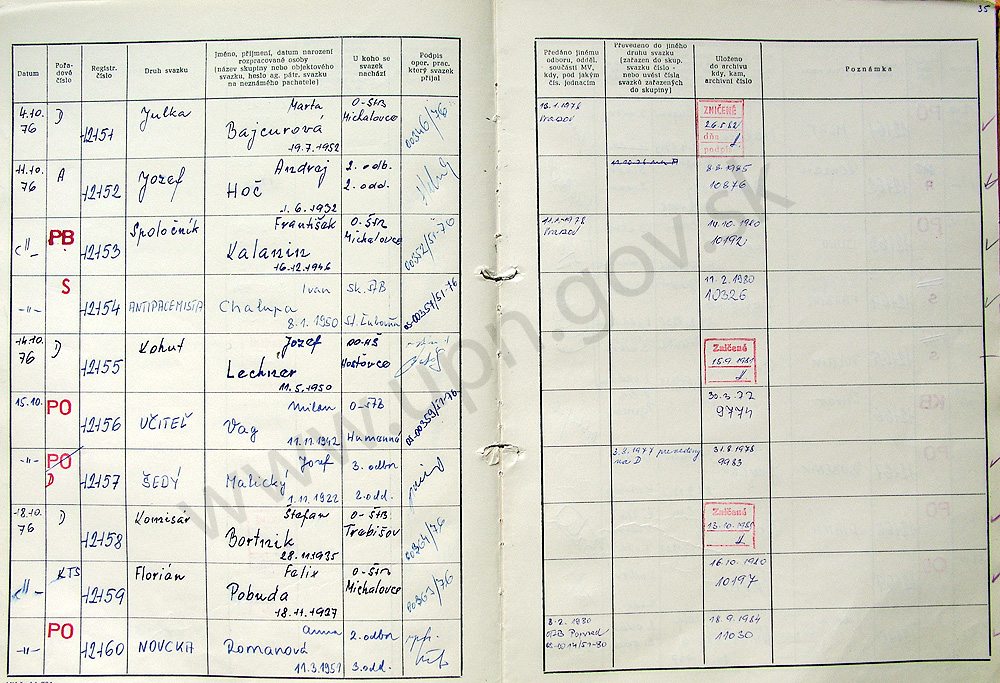 35
Datum
Pořa-
dové
číslo
Registr.
číslo
Druh svazku
Jméno, příjmení, datum narození
rozpracované osoby
(název skupiny nebo objektového
svazku, heslo ag. pátr. svazku
na neznámého pachatele)
U koho se
svazek
nachází
Podpis
oper. prac.
který svazek
přijal
Předáno jinému
odboru, odděl.
součásti MV,
kdy, pod jakým
čís. jednacím
Převedeno do jiného
druhu svazku
(zařazen do skup.
svazku číslo -
nebo uvést čísla
svazků zařazených
do skupiny)
Uloženo
do archivu
kdy, kam,
archivní číslo
Poznámka
4.10.
76
D
12151
Julka
Marta
Bajcurová
19.7.1952
O-ŠtB
Michalovce
00346/76
16.1.1976
ZNIČENÉ
dňa
11.10.
76
A
12152
Jozef
Andrej
Hoč
1.6.1932
2. odb.
2. odd.
8.8.1985
10876
-"-
PB
12153
Spoločník
František
Kalanin
16.12.1946
O-ŠtB
Michalovce
00352/51-76
14.10.1980
10192
-"-
S
12154
ANTIPACEMISTA
Ivan
Chalupa
8.1.1950
St. Ľubovňa
11.2.1980
10326
14.10.
76
D
12155
Kohut
Jozef
Lechner
11.5.1950
Hosťovce
Zničené
15.9.1981
15.10.
PO
12156
UČITEĽ
Milan
Vag
11.11.1942
Humenné
9774
-"-
PO
D
12157
ŠEDÝ
Jozef
Malický
1.11.1922
3. odbor
2. odd.
3.8.1977
na D
31.8.1978
9983
18.10.
76
D
12158
Komisár
Štefan
Bortnik
28.11.1935
O-ŠtB
Trebišov
00364/76
Zničené
13.10.1981
-"-
KTS
12159
Florián
Felix
Pobuda
18.11.1927
O-ŠtB
Michalovce
00365/76
16.10.1980
10197
-"-
PO
12160
Anna
Romanová
11.3.1951
2. odbor
3. odd.
8.2.1980
18.9.1984
11030
www.upn.gov.sk